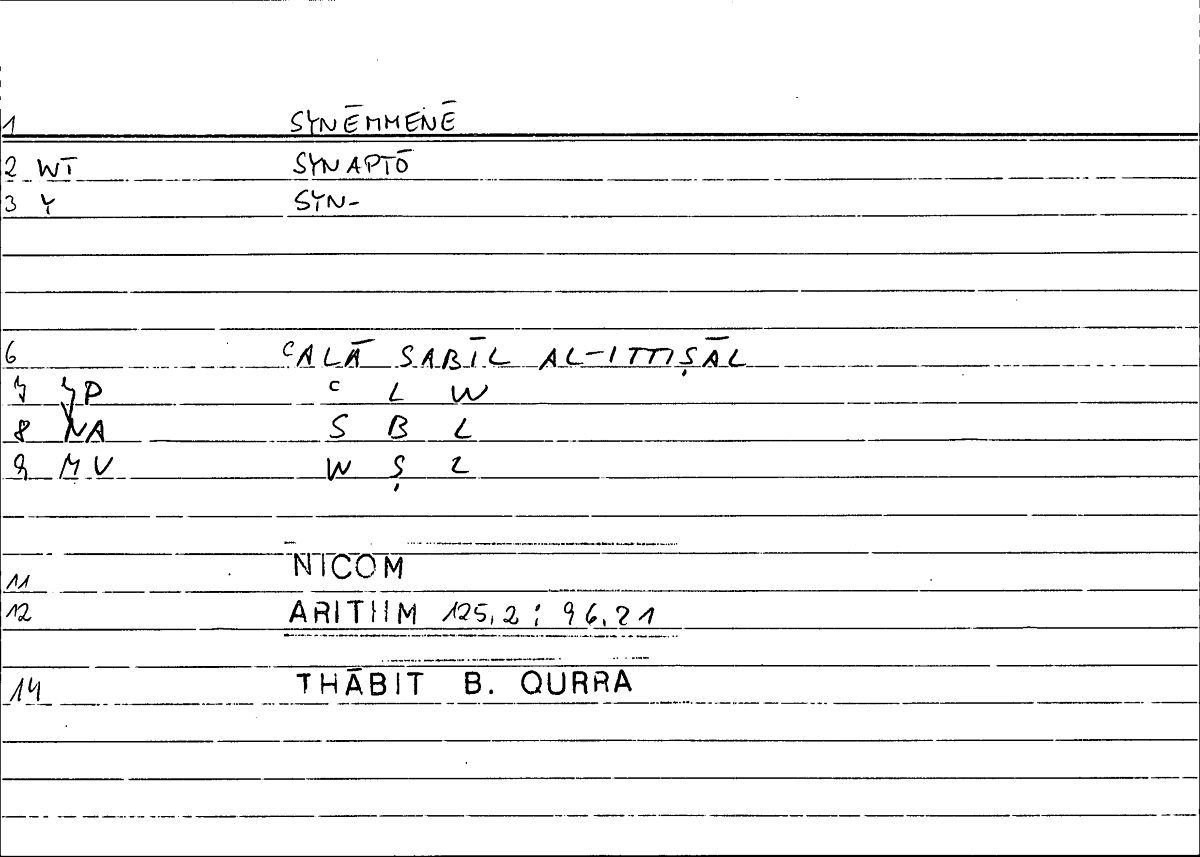 1 SYNĒMMENĒ
2 WT SYNAPTŌ
3 Y SYN-
6 ᶜALĀ SABĪL AL-ITTIṢĀL
7 YP ᶜ L W
8 NA S B L
9 MV W Ṣ L
11 NICOM
12 ARITHM 125,2 ; 96,21
14 THĀBIT B. QURRA